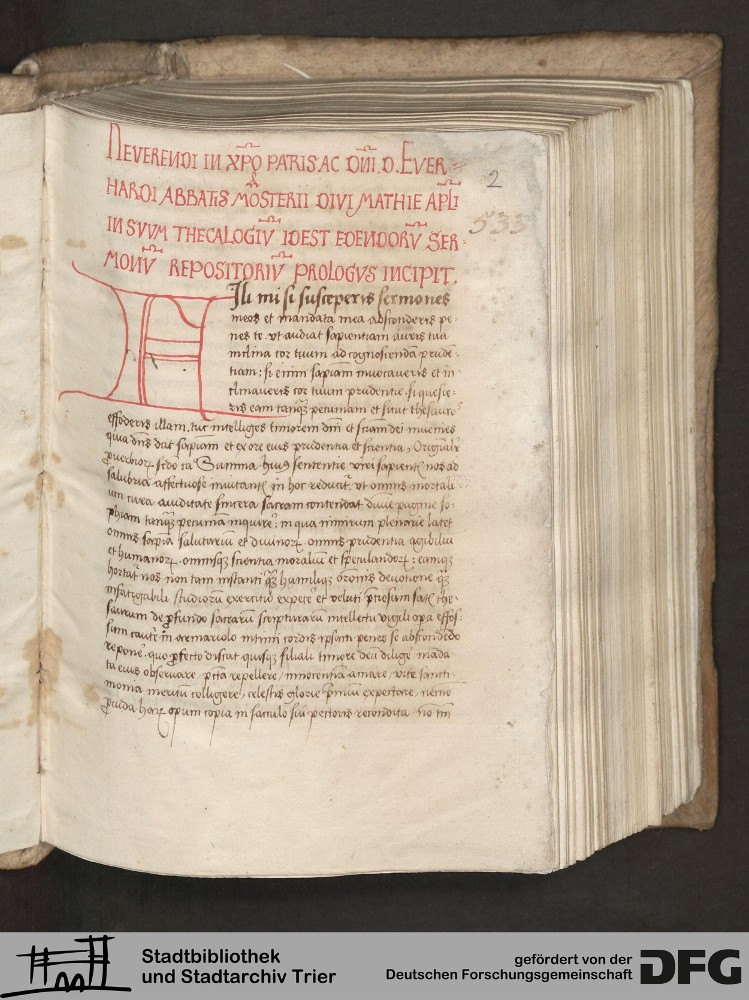 REVERENDI IN XP̄O PATRIS AC DN̄I D. EVER=
HARDI ABBATIS MOSTERII DIVI MATHIE APL̄I
IN SVVM THECALOGIV̄ IDEST EDENDORV̄ SER-
MONV̄ REPOSITORIV̄ PROLOGVS INCIPIT.
2
533
FIli mi si susceperis sermones
meos et mandata mea absconderis pe-
nes te. vt audiat sapientiam auris tua
inclina cor tuum ad cognoscenda prude-
tiam: si enim sapīam inuocaueris et in
clinaueris cor tuum prudentie. si quesie-
ris eam tanq̄ʒ pecuniam et sicut thesauros
effoderis illam, tūc intelliges timorem dn̄i et sciam dei inuenies
quia dn̄s dat sapīam et ex ore eius prudentia et scientia,
prouerbiorꝝ scd̄o ca Summa huiꝰ sententie viri sapientꝭ nos ad
salubria affectuose inuitantꝭ in hoc reducit̄. vt omnis mortali-
um cura auiditate sincera sacram contendat diuīe pagine so-
phiam tanq̄ʒ pecuniā inquire: in qua nimirum plenarie latet
omnis sapīa salutarium et diuinorꝝ. omnis prudentia agibiliū
et humanorꝝ. omnisqʒ scientia moralium et speculandorꝝ: eamqʒ
hortat̄ nos non tam instanti q̄ʒ humiliqʒ orōnis deuotione qʒ
infatigabili studiorū exercitio expetē et veluti p̄tiosum the-
saurum de ꝓfundo sacrarū scripturarū intellectu vigili opa effos-
sum caute in armariolo intimi cordis penes se abscondēdo
reponē. quo ꝓfecto discat quisqʒ filiali timore deū diligē māda-
ta eius obseruare, pctā repellere, innocentiā amare, vite sancti-
monia meritū colligere, celestis glorie p̄mium expectare, nēmo
ꝓuida harꝝ opum copia in sacculo sui pectoris recondita. nō tm̄
Stadtbibliothek
und Stadtarchiv Trier
gefördert von der
Deutschen Forschungsgemeinschaft
DFG